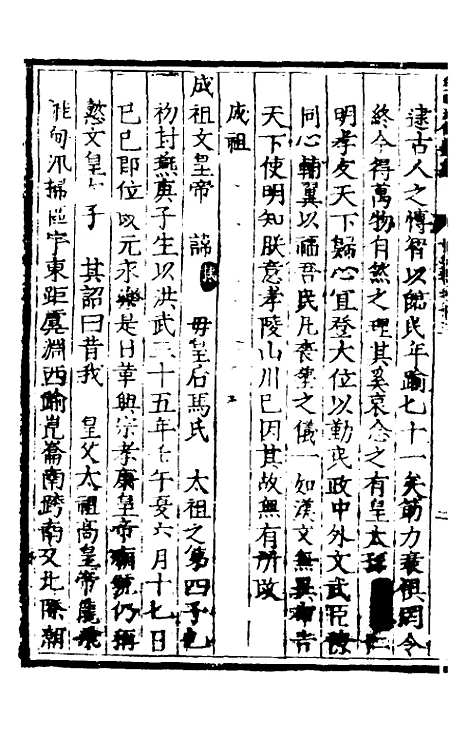 逮古人之博智以臨民年踰七十一矣筋力衰𢠢罔令
終今得萬物自然之理其奚哀念之有皇太孫 仁
明孝友天下歸心宜登大位以勤民政中外文武臣僚
同心輔翼以福吾民凡喪塟之儀一如漢文無異布告
天下使明知朕意孝陵山川已因其故無有所改
成祖
成祖文皇帝 諱 棣 母皇后馬氏 太祖之第四子也
初封燕庚子生以洪武三十五年壬午夏六月十七日
己巳即位以元永樂是日革興宗孝康皇帝廟號仍稱
懿文皇太子 其詔曰昔我 皇父太祖高皇帝龍飛
淮甸汛掃區宇東距虞淵西踰崑崙南跨南交北際朝